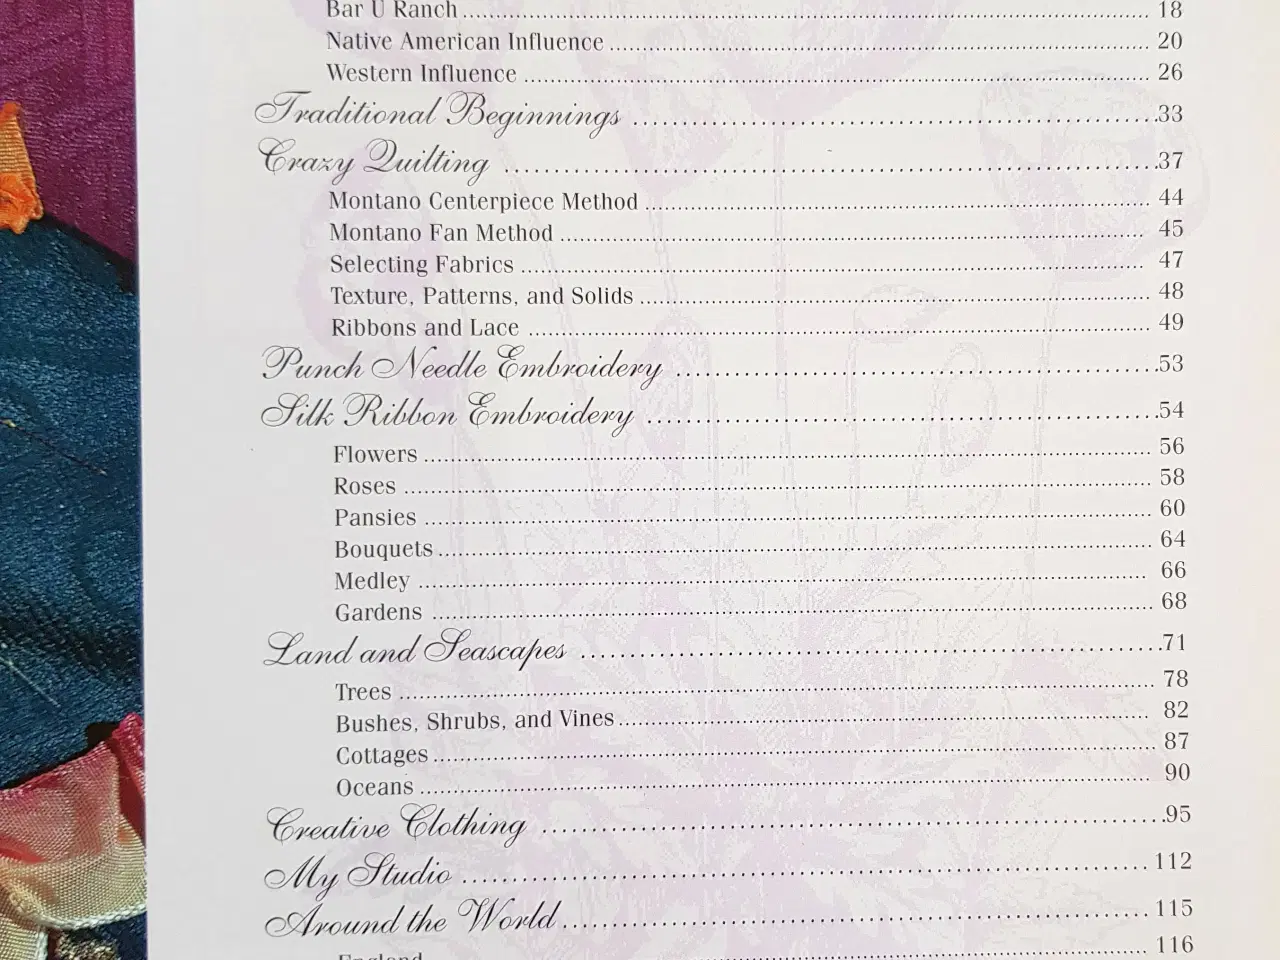 Bar U Ranch 18
Native American Influence 20
Western Influence 26
Traditional Beginnings 33
Crazy Quilting 37
Montano Centerpiece Method 44
Montano Fan Method 45
Selecting Fabrics 47
Texture, Patterns, and Solids 48
Ribbons and Lace 49
Punch Needle Embroidery 53
Silk Ribbon Embroidery 54
Flowers 56
Roses 58
Pansies 60
Bouquets 64
Medley 66
Gardens 68
Land and Seascapes 71
Trees 78
Bushes, Shrubs, and Vines 82
Cottages 87
Oceans 90
Creative Clothing 95
My Studio 112
Around the World 115
England 116